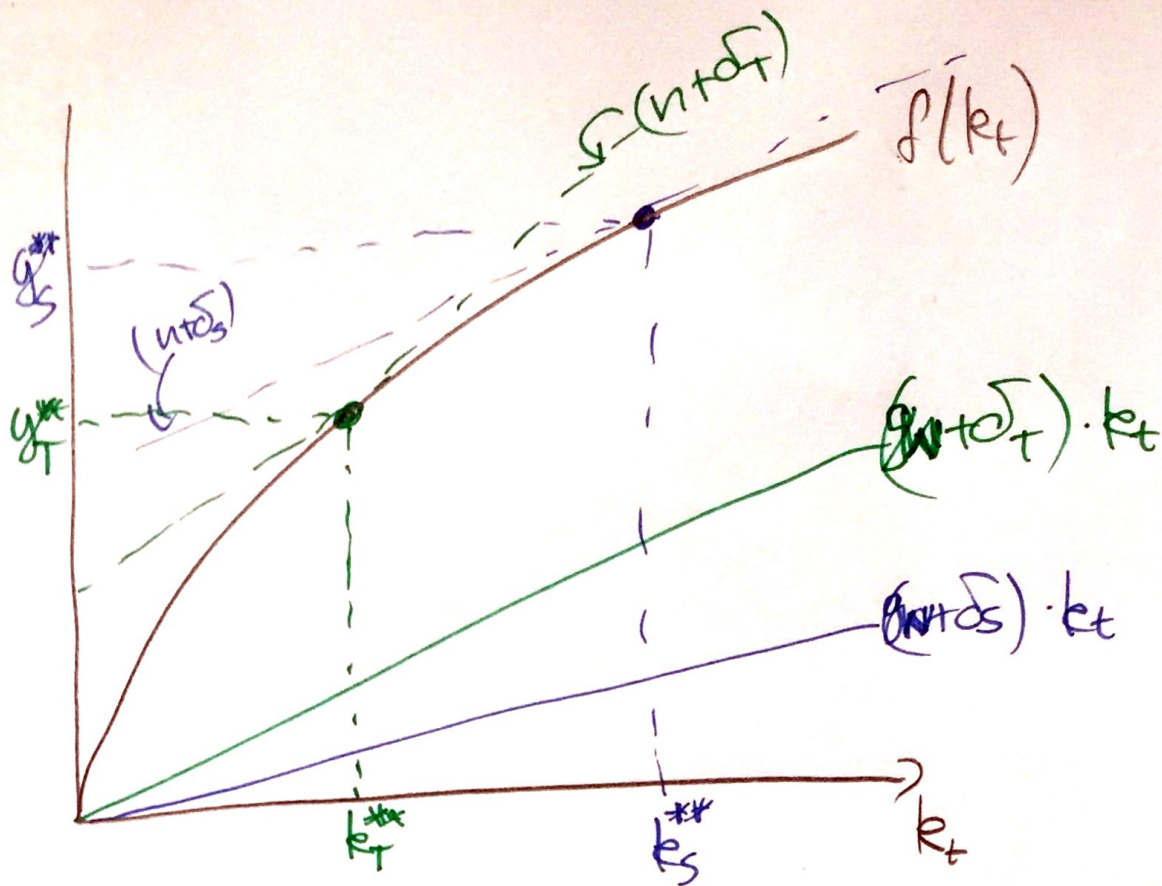 (n+δ_T)
f(k_t)
y_S^**
(n+δ_s)
y_T^**
(n+δ_T)·k_t
(n+δ_s)·k_t
k_T^**
k_S^**
k_t